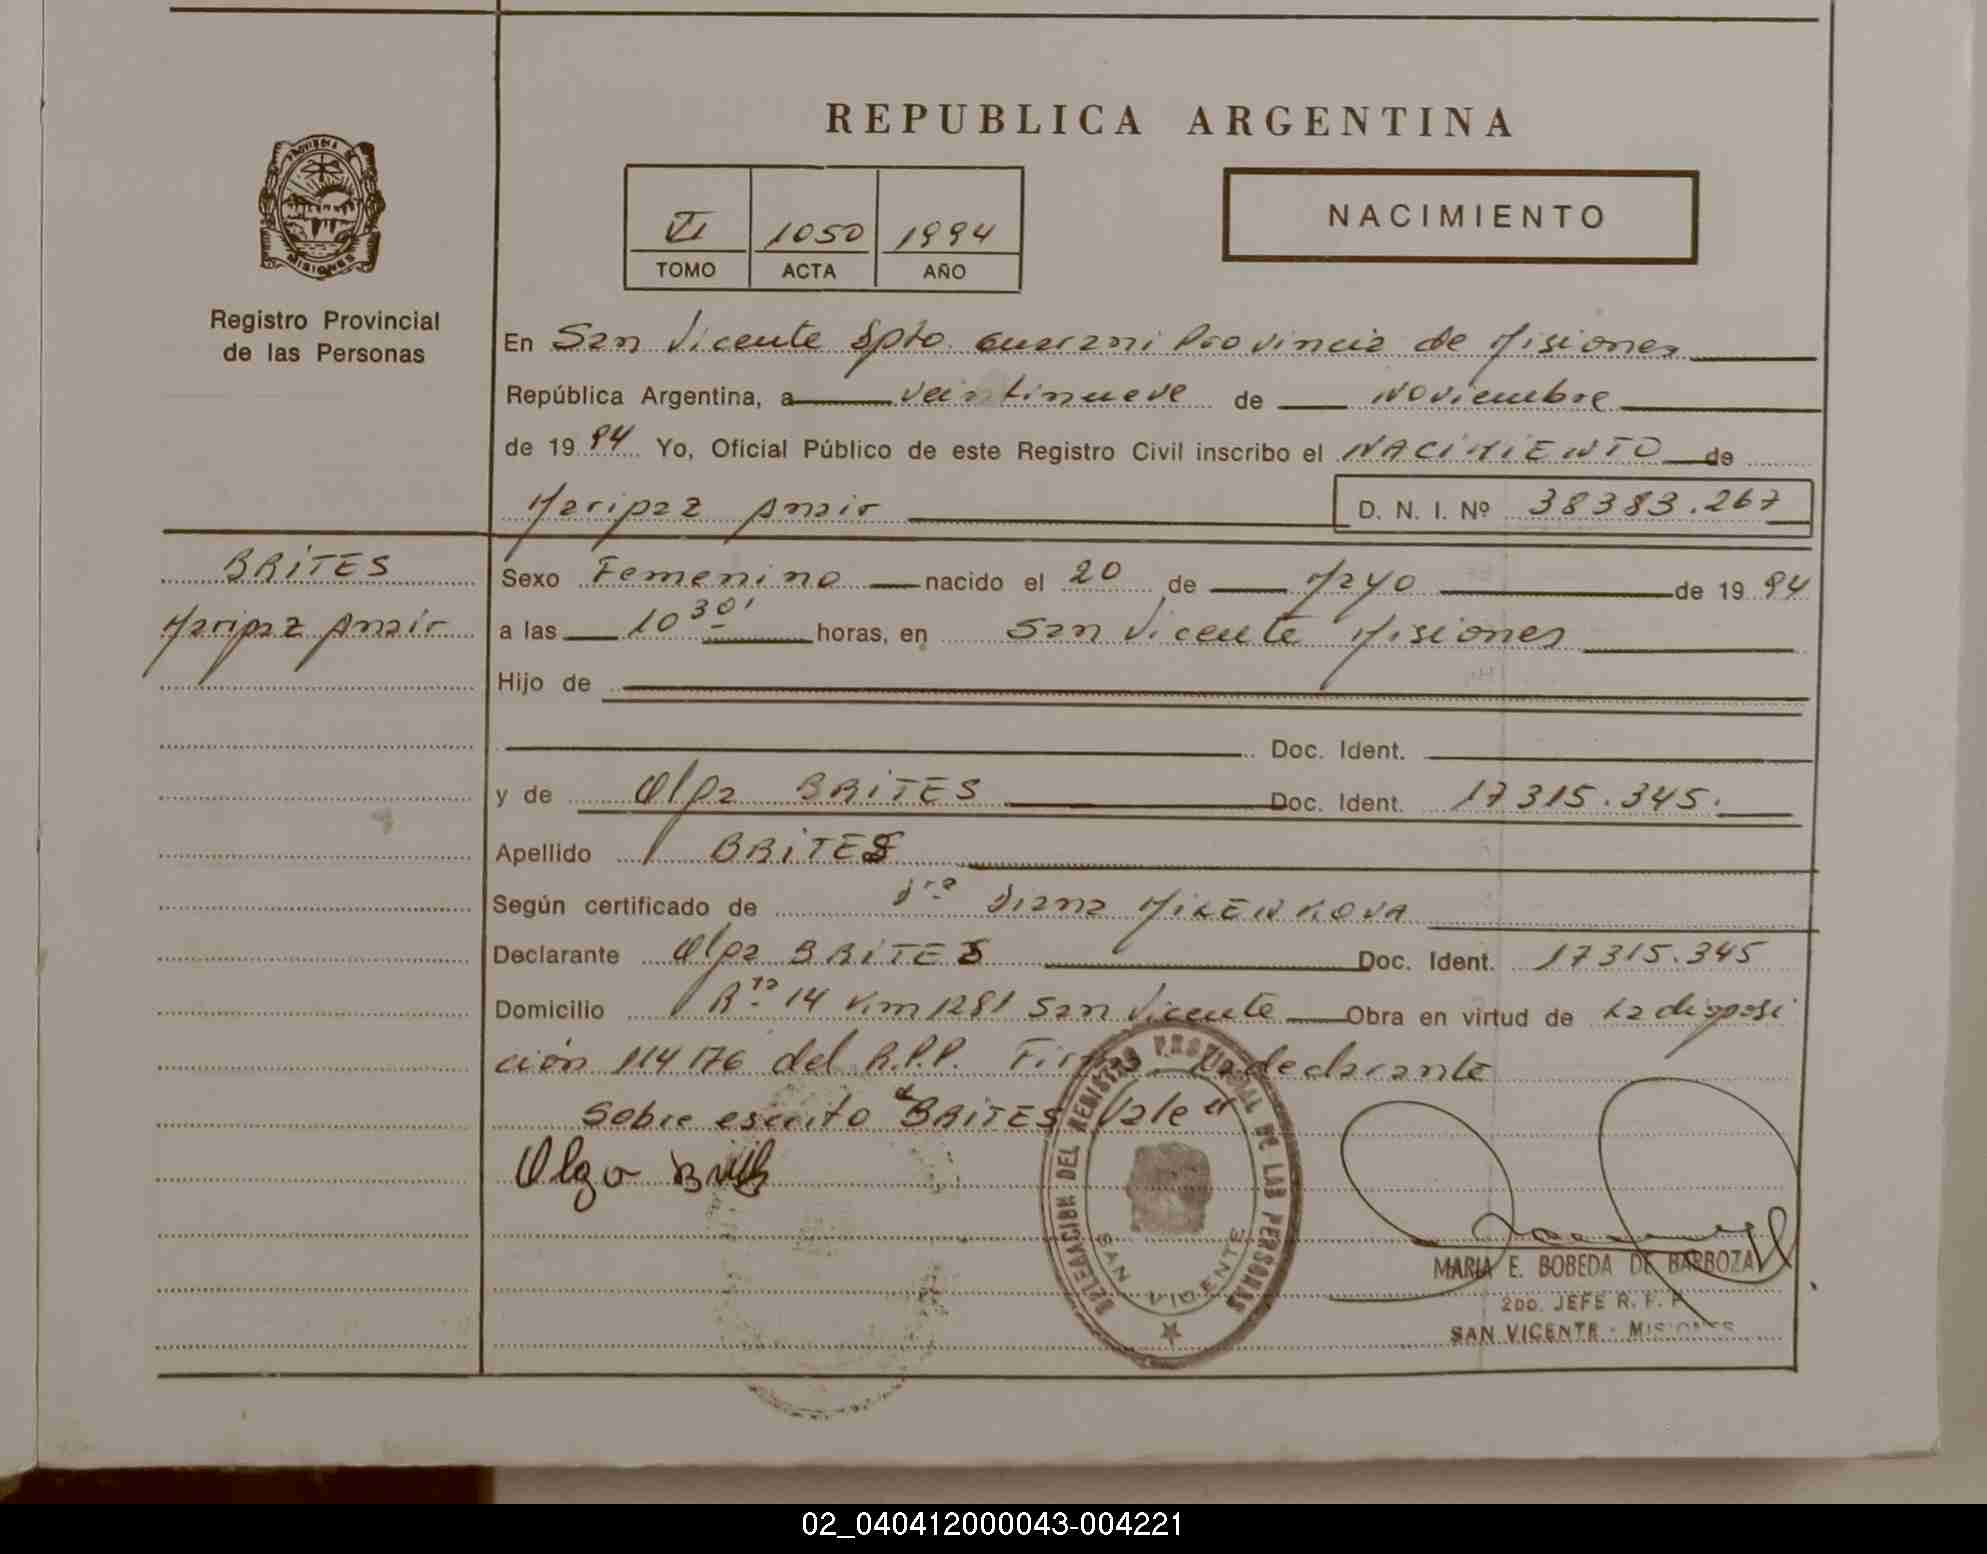 REPUBLICA ARGENTINA
PROVINCIA DE
MISIONES
Registro Provincial
de las Personas
VI 1050 1994
TOMO ACTA AÑO
NACIMIENTO
En San Vicente Dpto. Guarani Provincia de Misiones
República Argentina, a veintinueve de Noviembre
de 19 94 Yo, Oficial Público de este Registro Civil inscribo el NACIMIENTO de
Maripaz Anair D. N. I. Nº 38383.267
BRITES
Maripaz Anair
Sexo Femenino nacido el 20 de Mayo de 19 94
a las 10 30' horas, en San Vicente Misiones
Hijo de
Doc. Ident.
y de Olga BRITES Doc. Ident. 17315.345.
Apellido BRITES
Según certificado de Dra Diana MILENKOVA
Declarante Olga BRITES Doc. Ident. 17315.345
Domicilio Rta 14 Km 1281 San Vicente Obra en virtud de La disposi
ción 114176 del R.P.P. Firma La declarante
Sobre escrito "BRITES Vale"
Olga Brites
DELEGACION DEL REGISTRO PROVINCIAL DE LAS PERSONAS
SAN VICENTE
MARIA E. BOBEDA DE BARBOZA
2DO. JEFE R. P. P.
SAN VICENTE - MISIONES
02_040412000043-004221